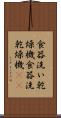 食器洗い乾
燥機食器洗
乾燥機